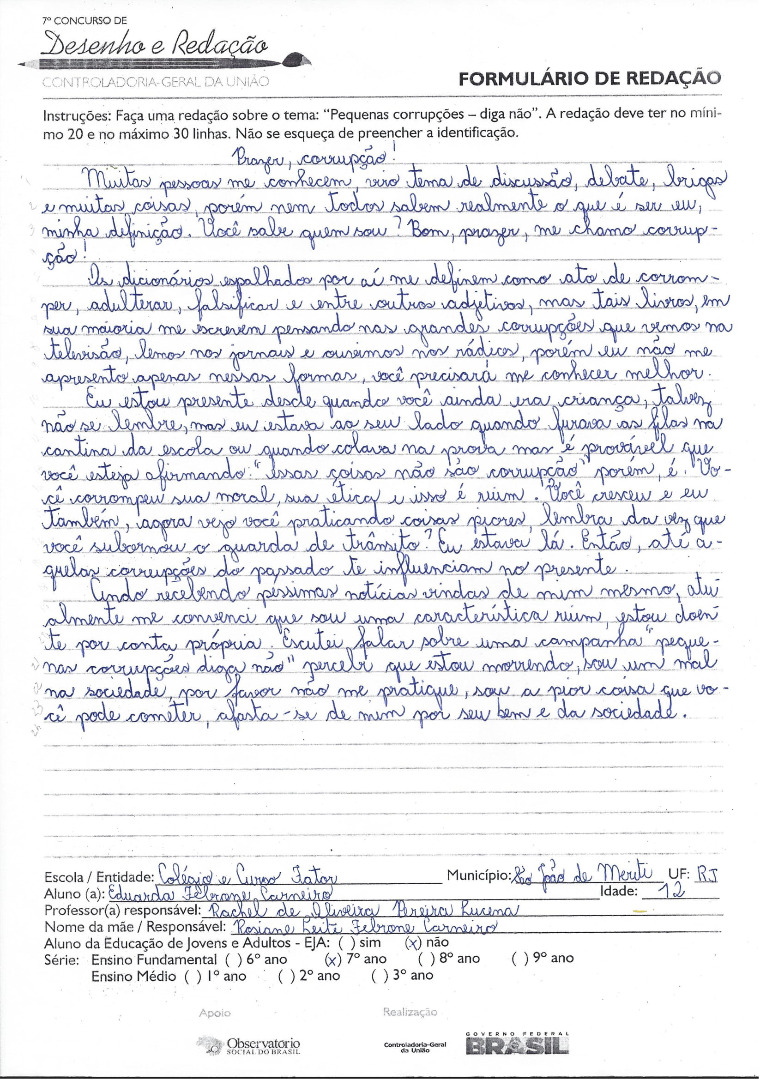 7º CONCURSO DE
Desenho e Redação
CONTROLADORIA-GERAL DA UNIÃO
FORMULÁRIO DE REDAÇÃO
Instruções: Faça uma redação sobre o tema: “Pequenas corrupções – diga não”. A redação deve ter no míni-
mo 20 e no máximo 30 linhas. Não se esqueça de preencher a identificação.
Prazer, corrupção!
Muitas pessoas me conhecem, viro tema de discussão, debate, brigas
e muitas coisas, porém nem todos sabem realmente o que é ser eu,
minha definição. Você sabe quem sou? Bom, prazer, me chamo corrup-
ção!
Os dicionários espalhados por aí me definem como ato de corrom-
per, adulterar, falsificar e entre outros adjetivos, mas tais livros, em
sua maioria me escrevem pensando nas grandes corrupções que vemos na
televisão, lemos nos jornais e ouvimos nos rádios, porém eu não me
apresento apenas nessas formas, você precisará me conhecer melhor.
Eu estou presente desde quando você ainda era criança, talvez
não se lembre, mas eu estava ao seu lado quando furava as filas na
cantina da escola ou quando colava na prova mas é provável que
você esteja afirmando: "Essas coisas não são corrupção" porém, é. Vo-
cê corrompeu sua moral, sua ética e isso é ruim. Você cresceu e eu
também, agora vejo você praticando coisas piores, lembra da vez que
você subornou o guarda de trânsito? Eu estava lá. Então, até a-
quelas corrupções do passado te influenciam no presente.
Ando recebendo pessimas notícias vindas de mim mesmo, atu
almente me convenci que sou uma característica ruim, estou doen
te por conta própria. Escutei falar sobre uma campanha "peque-
nas corrupções diga não" percebi que estou morrendo, sou um mal
na sociedade, por favor não me pratique, sou a pior coisa que vo-
cê pode cometer, afasta-se de mim por seu bem e da sociedade.
Escola / Entidade: Colégio e Curso Fator Município: São João de Meriti UF: RJ
Aluno (a): Eduarda Febrone Carneiro Idade: 12
Professor(a) responsável: Rachel de Oliveira Pereira Lucena
Nome da mãe / Responsável: Rosiane Leite Febrone Carneiro
Aluno da Educação de Jovens e Adultos - EJA: ( ) sim (x) não
Série: Ensino Fundamental ( ) 6º ano (x) 7º ano ( ) 8º ano ( ) 9º ano
Ensino Médio ( ) 1º ano ( ) 2º ano ( ) 3º ano
Apoio Realização
Observatório SOCIAL DO BRASIL
Controladoria-Geral da União
GOVERNO FEDERAL
BRASIL